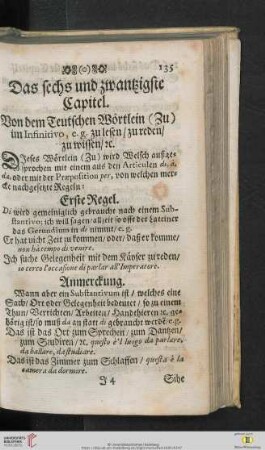 135
Das sechs und zwantzigste
Capitel.
Von dem Teutschen Wörtlein (Zu)
im Infinitivo, e. g. zu lesen / zu reden /
zu wissen / ꝛc.
DJeses Wörtlein (Zu) wird Welsch außge-
sprochen mit einem aus den Articulen di, à,
da, oder mit der Præposition per, von welchen mer-
cke nachgesetzte Regeln:
Erste Regel.
Di wird gemeiniglich gebraucht nach einem Sub-
stantivo; ich will sagen / allzeit so offt der Lateiner
das Gerundium in di nimmt / e. g.
Er hat nicht Zeit zu kommen / oder / daß er komme /
non hà tempo di venire.
Jch suche Gelegenheit mit dem Käyser zu reden /
io cerco l'occasione di parlar all' Imperatore.
Anmerckung.
Wann aber ein Substantivum ist / welches eine
Sach / Ort oder Gelegenheit bedeutet / so zu einem
Thun / Verrichten / Arbeiten / Handthieren ꝛc. ge-
hörig ist / so muß da an statt di gebraucht werde: e. g.
Das ist das Ort zum Sprechen / zum Dantzen /
zum Studiren / ꝛc. questo è'l luogo da parlare,
da ballare, da studiare.
Das ist das Zimmer zum Schlaffen / questa è la
camera da dormire.
J 4 Sihe